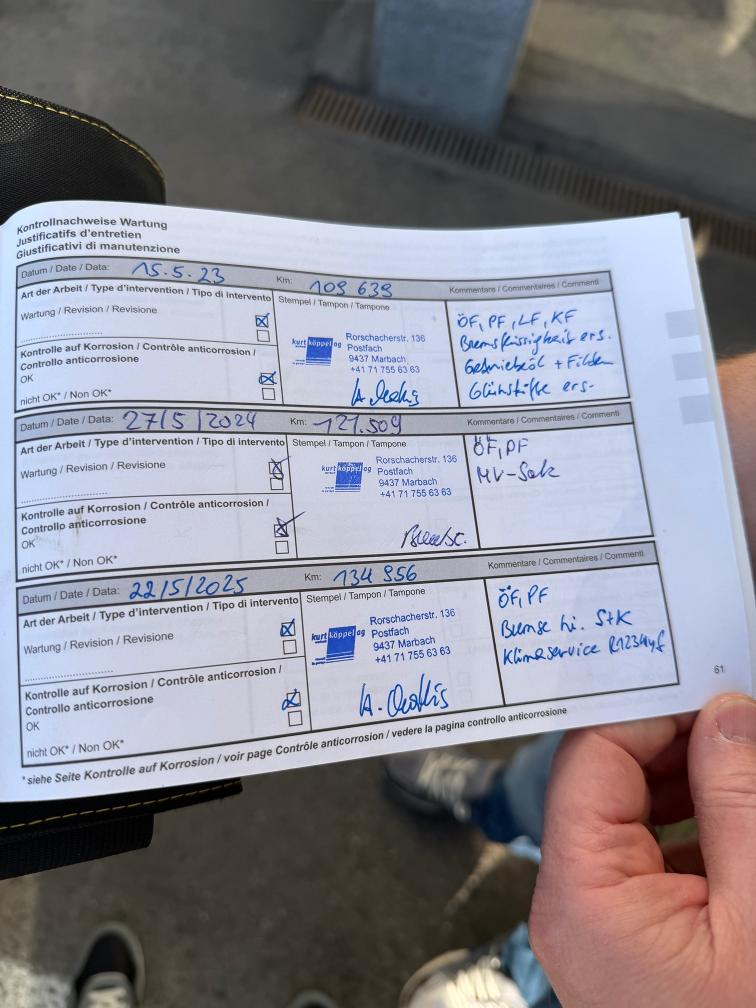 Kontrollnachweise Wartung
Justificatifs d'entretien
Giustificativi di manutenzione
Datum / Date / Data: 15.5.23 Km: 109 639 Kommentare / Commentaires / Commenti
Art der Arbeit / Type d'intervention / Tipo di intervento
Stempel / Tampon / Tampone
Wartung / Revision / Revisione
Kontrolle auf Korrosion / Contrôle anticorrosion /
Controllo anticorrosione
OK
nicht OK* / Non OK*
kurt köppel ag
Rorschacherstr. 136
Postfach
9437 Marbach
+41 71 755 63 63
ÖF, PF, LF, KF
Bremsflüssigkeit ers.
Getriebeöl + Filter
Glühstifte ers.
Datum / Date / Data: 27/5/2024 Km: 121.509 Kommentare / Commentaires / Commenti
Art der Arbeit / Type d'intervention / Tipo di intervento
Stempel / Tampon / Tampone
Wartung / Revision / Revisione
Kontrolle auf Korrosion / Contrôle anticorrosion /
Controllo anticorrosione
OK
nicht OK* / Non OK*
kurt köppel ag
Rorschacherstr. 136
Postfach
9437 Marbach
+41 71 755 63 63
ÖF, PF
Datum / Date / Data: 22/5/2025 Km: 134 956 Kommentare / Commentaires / Commenti
Art der Arbeit / Type d'intervention / Tipo di intervento
Stempel / Tampon / Tampone
Wartung / Revision / Revisione
Kontrolle auf Korrosion / Contrôle anticorrosion /
Controllo anticorrosione
OK
nicht OK* / Non OK*
kurt köppel ag
Rorschacherstr. 136
Postfach
9437 Marbach
+41 71 755 63 63
ÖF, PF
Bremse hi. S+K
Klimaservice R1234yf
*siehe Seite Kontrolle auf Korrosion / voir page Contrôle anticorrosion / vedere la pagina controllo anticorrosione
61